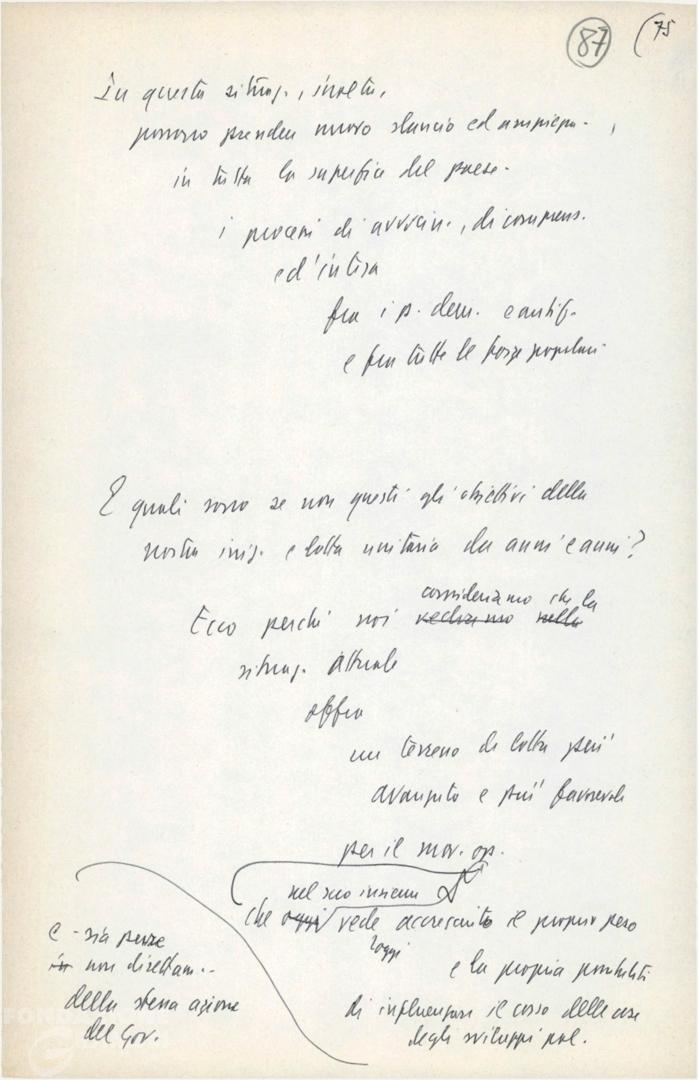 87 (75
In questa situaz., inoltre,
possono prendere nuovo slancio ed ampiezza
in tutta la superficie del paese.
i processi di avvicin., di comprens.
ed'intesa
fra i p. dem. e antif.
e fra tutte le forze popolari
E quali sono se non questi gli obiettivi della
nostra iniz. e lotta unitaria da anni e anni?
consideriamo che la
Ecco perché noi vediamo nella
situaz. attuale
offra
un terreno di lotta più
avanzato e più favorevole
per il mov. op.
nel suo insieme
che oggi vede accresciuto il proprio peso
oggi
e la propria possibilità
di influenzare il corso delle cose
degli sviluppi pol.
e - sia pure
in non direttam. -
della stessa azione
del Gov.